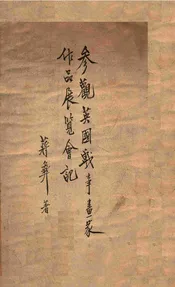 參觀英國戰事畫家
作品展覽會記
蔣彝 著